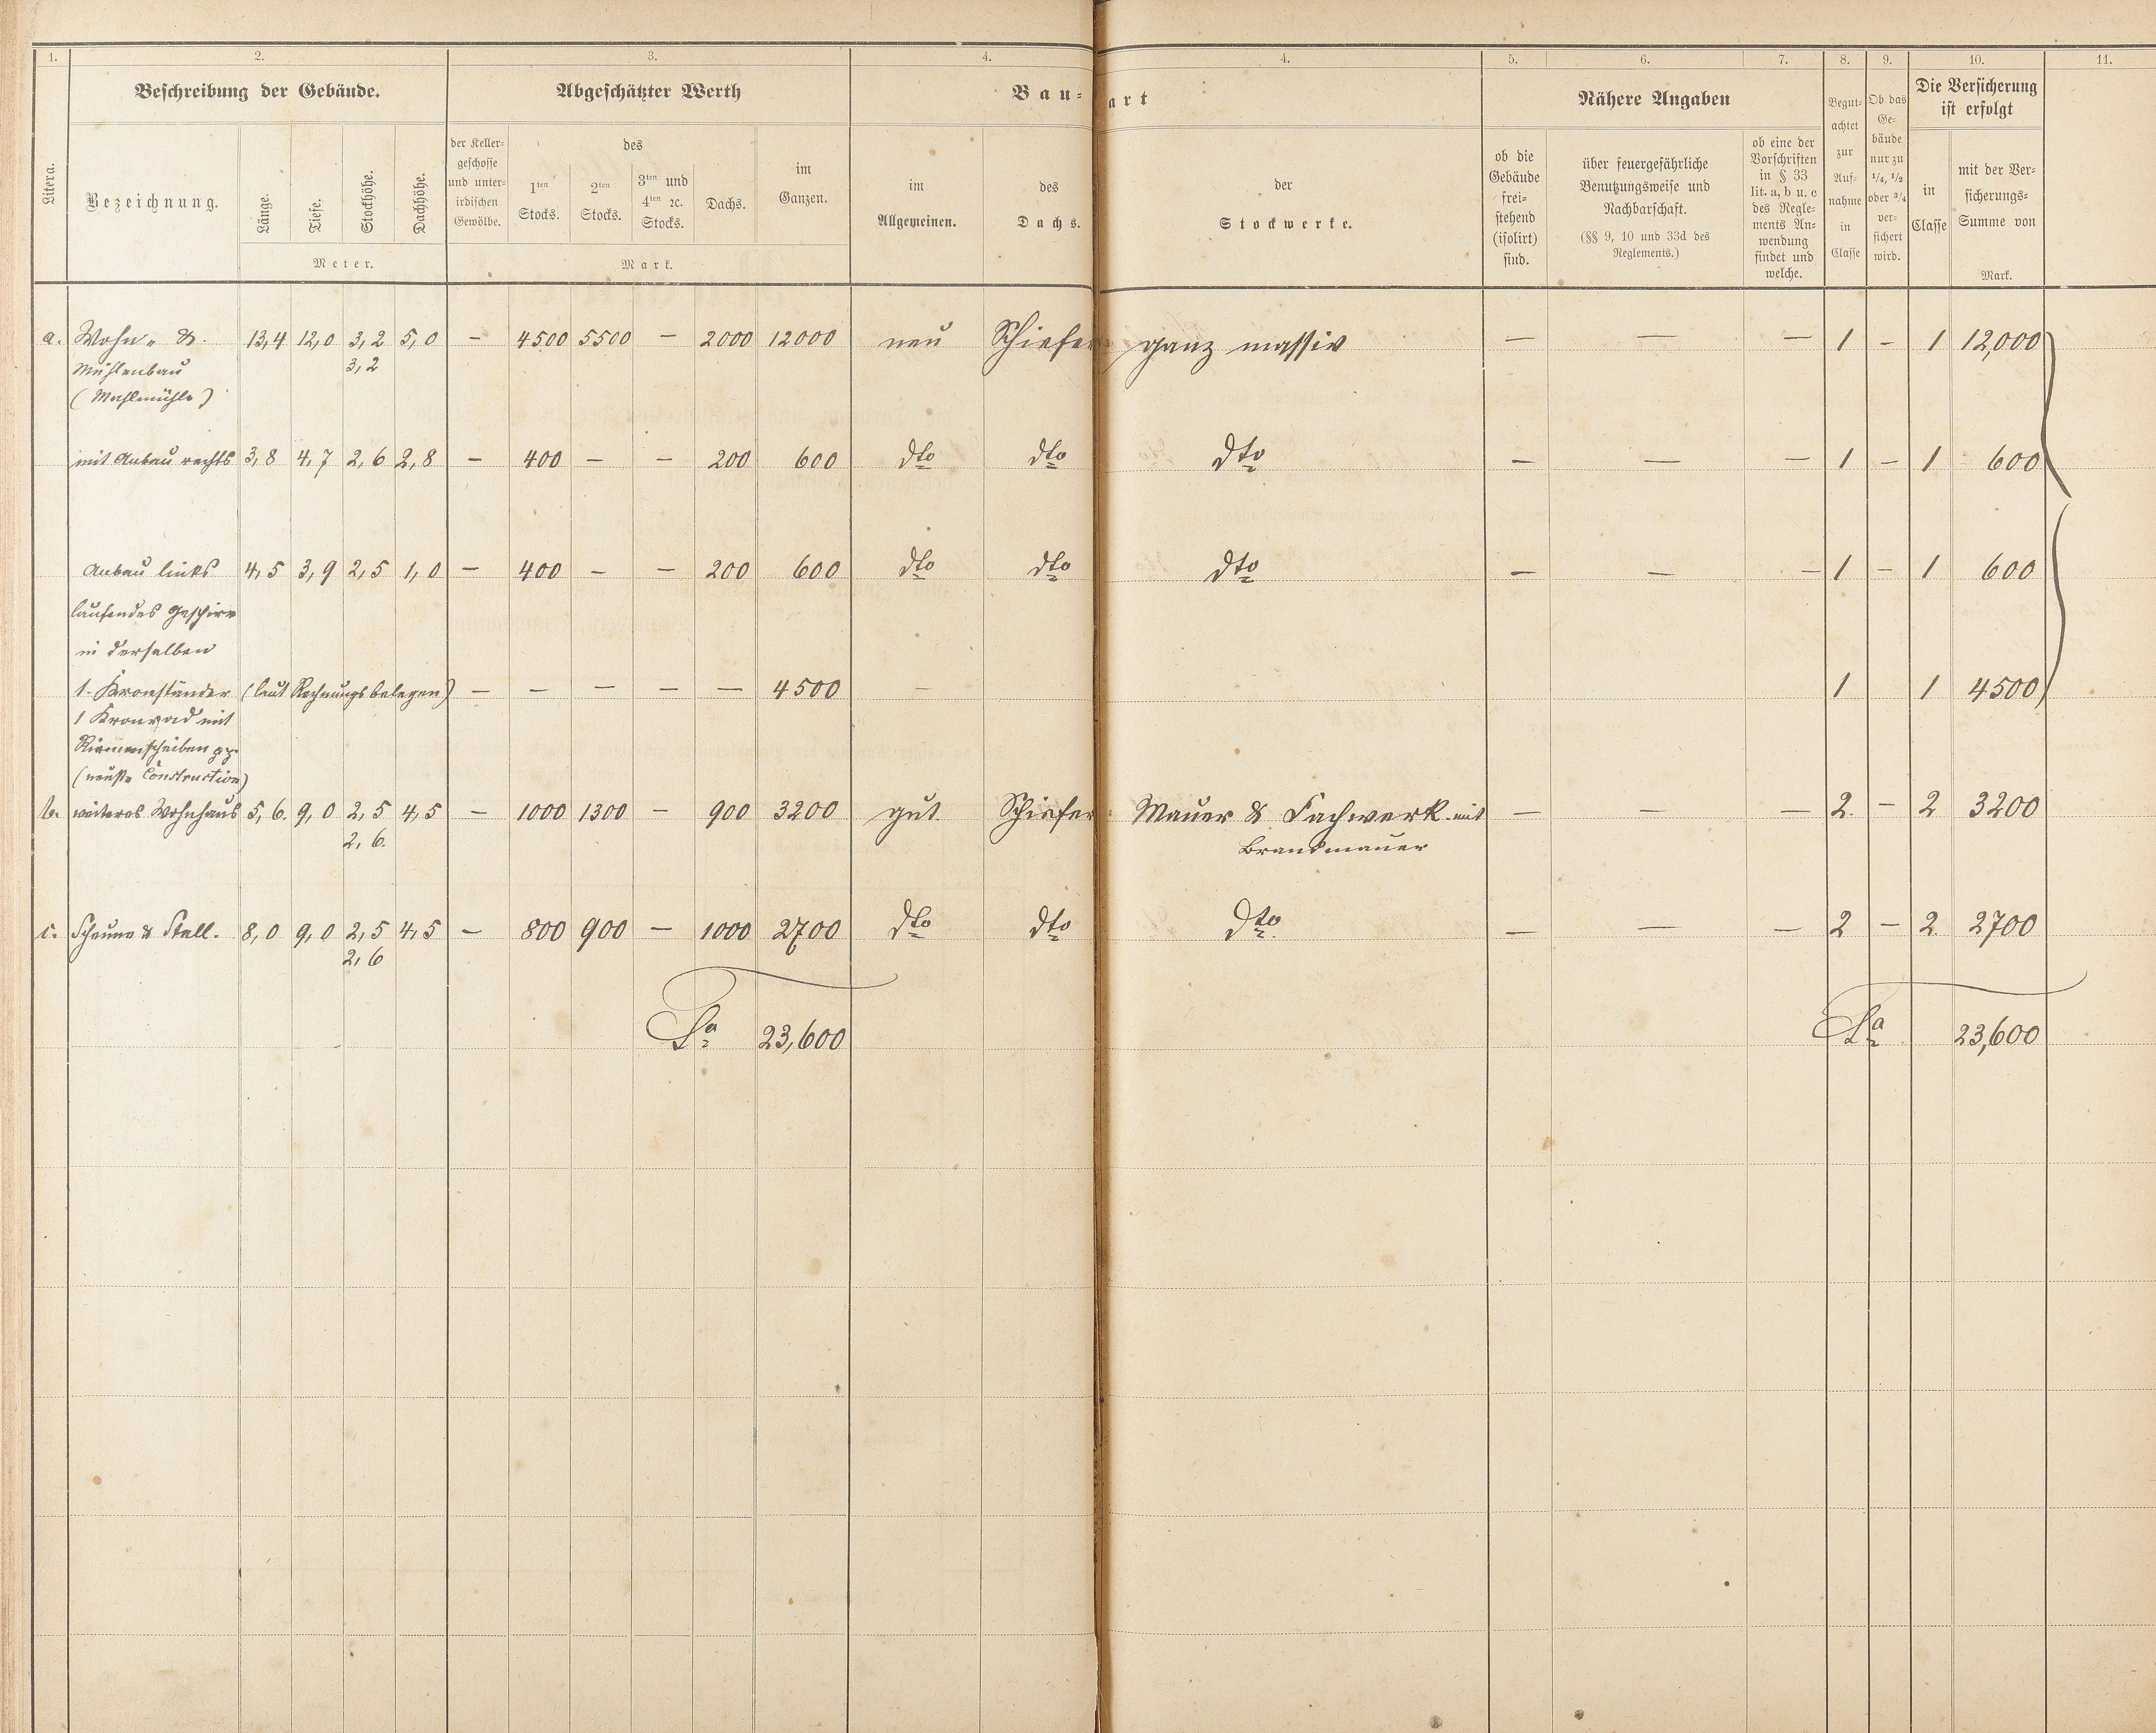 1. 2. 3. 4. 4. 5. 6. 7. 8. 9. 10. 11.
Beschreibung der Gebäude.
Abgeschätzter Werth
Bau-
art
Nähere Angaben
Die Versicherung
ist erfolgt
Litera.
Bezeichnung.
Länge.
Tiefe.
Stockhöhe.
Dachhöhe.
Meter.
der Keller-
geschosse
und unter-
irdischen
Gewölbe.
des
1ten
Stocks.
2ten
Stocks.
3ten und
4ten ꝛc.
Stocks.
Dachs.
im
Ganzen.
Mark.
im
Allgemeinen.
des
Dachs.
der
Stockwerke.
ob die
Gebäude
frei-
stehend
(isolirt)
sind.
über feuergefährliche
Benutzungsweise und
Nachbarschaft.
(§§ 9, 10 und 33d des
Reglements.)
ob eine der
Vorschriften
in § 33
lit. a, b u. c
des Regle-
ments An-
wendung
findet und
welche.
Begut-
achtet
zur
Auf-
nahme
in
Classe
Ob das
Ge-
bäude
nur zu
1/4, 1/2
oder 3/4
ver-
sichert
wird.
in
Classe
mit der Ver-
sicherungs-
Summe von
Mark.
a. Wohn- & 13,4 12,0 3,2 5,0 — 4500 5500 — 2000 12000 neu Schiefer ganz massiv — — — 1 — 1 12,000
Mühlenbau 3,2
(Mahlmühle)
mit Anbau rechts 3,8 4,7 2,6 2,8 — 400 — — 200 600 dto dto dto — — — 1 — 1 600
Anbau links 4,5 3,9 2,5 1,0 — 400 — — 200 600 dto dto dto — — — 1 — 1 600
laufendes Geschirr
in derselben
1. Kronständer (laut Rechnungsbelegen) — — — — — 4500 — 1 1 4500
1 Kronrad mit
Riemenscheiben pp.
(neuste Construction)
b. weiteres Wohnhaus 5,6. 9,0 2,5 4,5 — 1000 1300 — 900 3200 gut Schiefer Mauer & Fachwerk mit — — — 2. — 2 3200
2,6. Brandmauer
c. Scheune & Stall. 8,0 9,0 2,5 4,5 — 800 900 — 1000 2700 dto dto dto. — — — 2 — 2. 2700
2,6
Sa 23,600 Sa 23,600